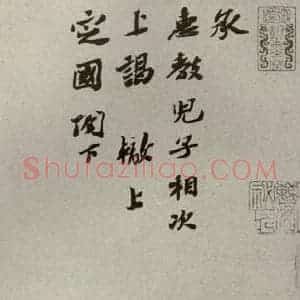 承
惠教兒子相次
上謁 轍上
定國閣下
Shufaziliao.COM